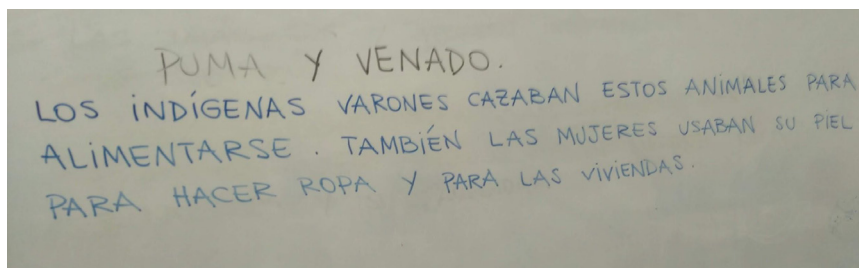 PUMA Y VENADO.
LOS INDÍGENAS VARONES CAZABAN ESTOS ANIMALES PARA
ALIMENTARSE. TAMBIÉN LAS MUJERES USABAN SU PIEL
PARA HACER ROPA Y PARA LAS VIVIENDAS.